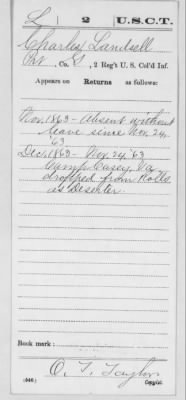 L | 2 | U.S.C.T.
Charles Landsell
Pvt., Co. G, 2 Reg't U. S. Col'd Inf.
Appears on Returns as follows:
Nov. 1863 - Absent without
leave since Nov. 24,
'63
Dec. 1863 - Nov. 24 '63
Camp Casey, Va
dropped from Rolls
as Deserter.
Book mark:
O. T. Taylor
(546) Copyist.